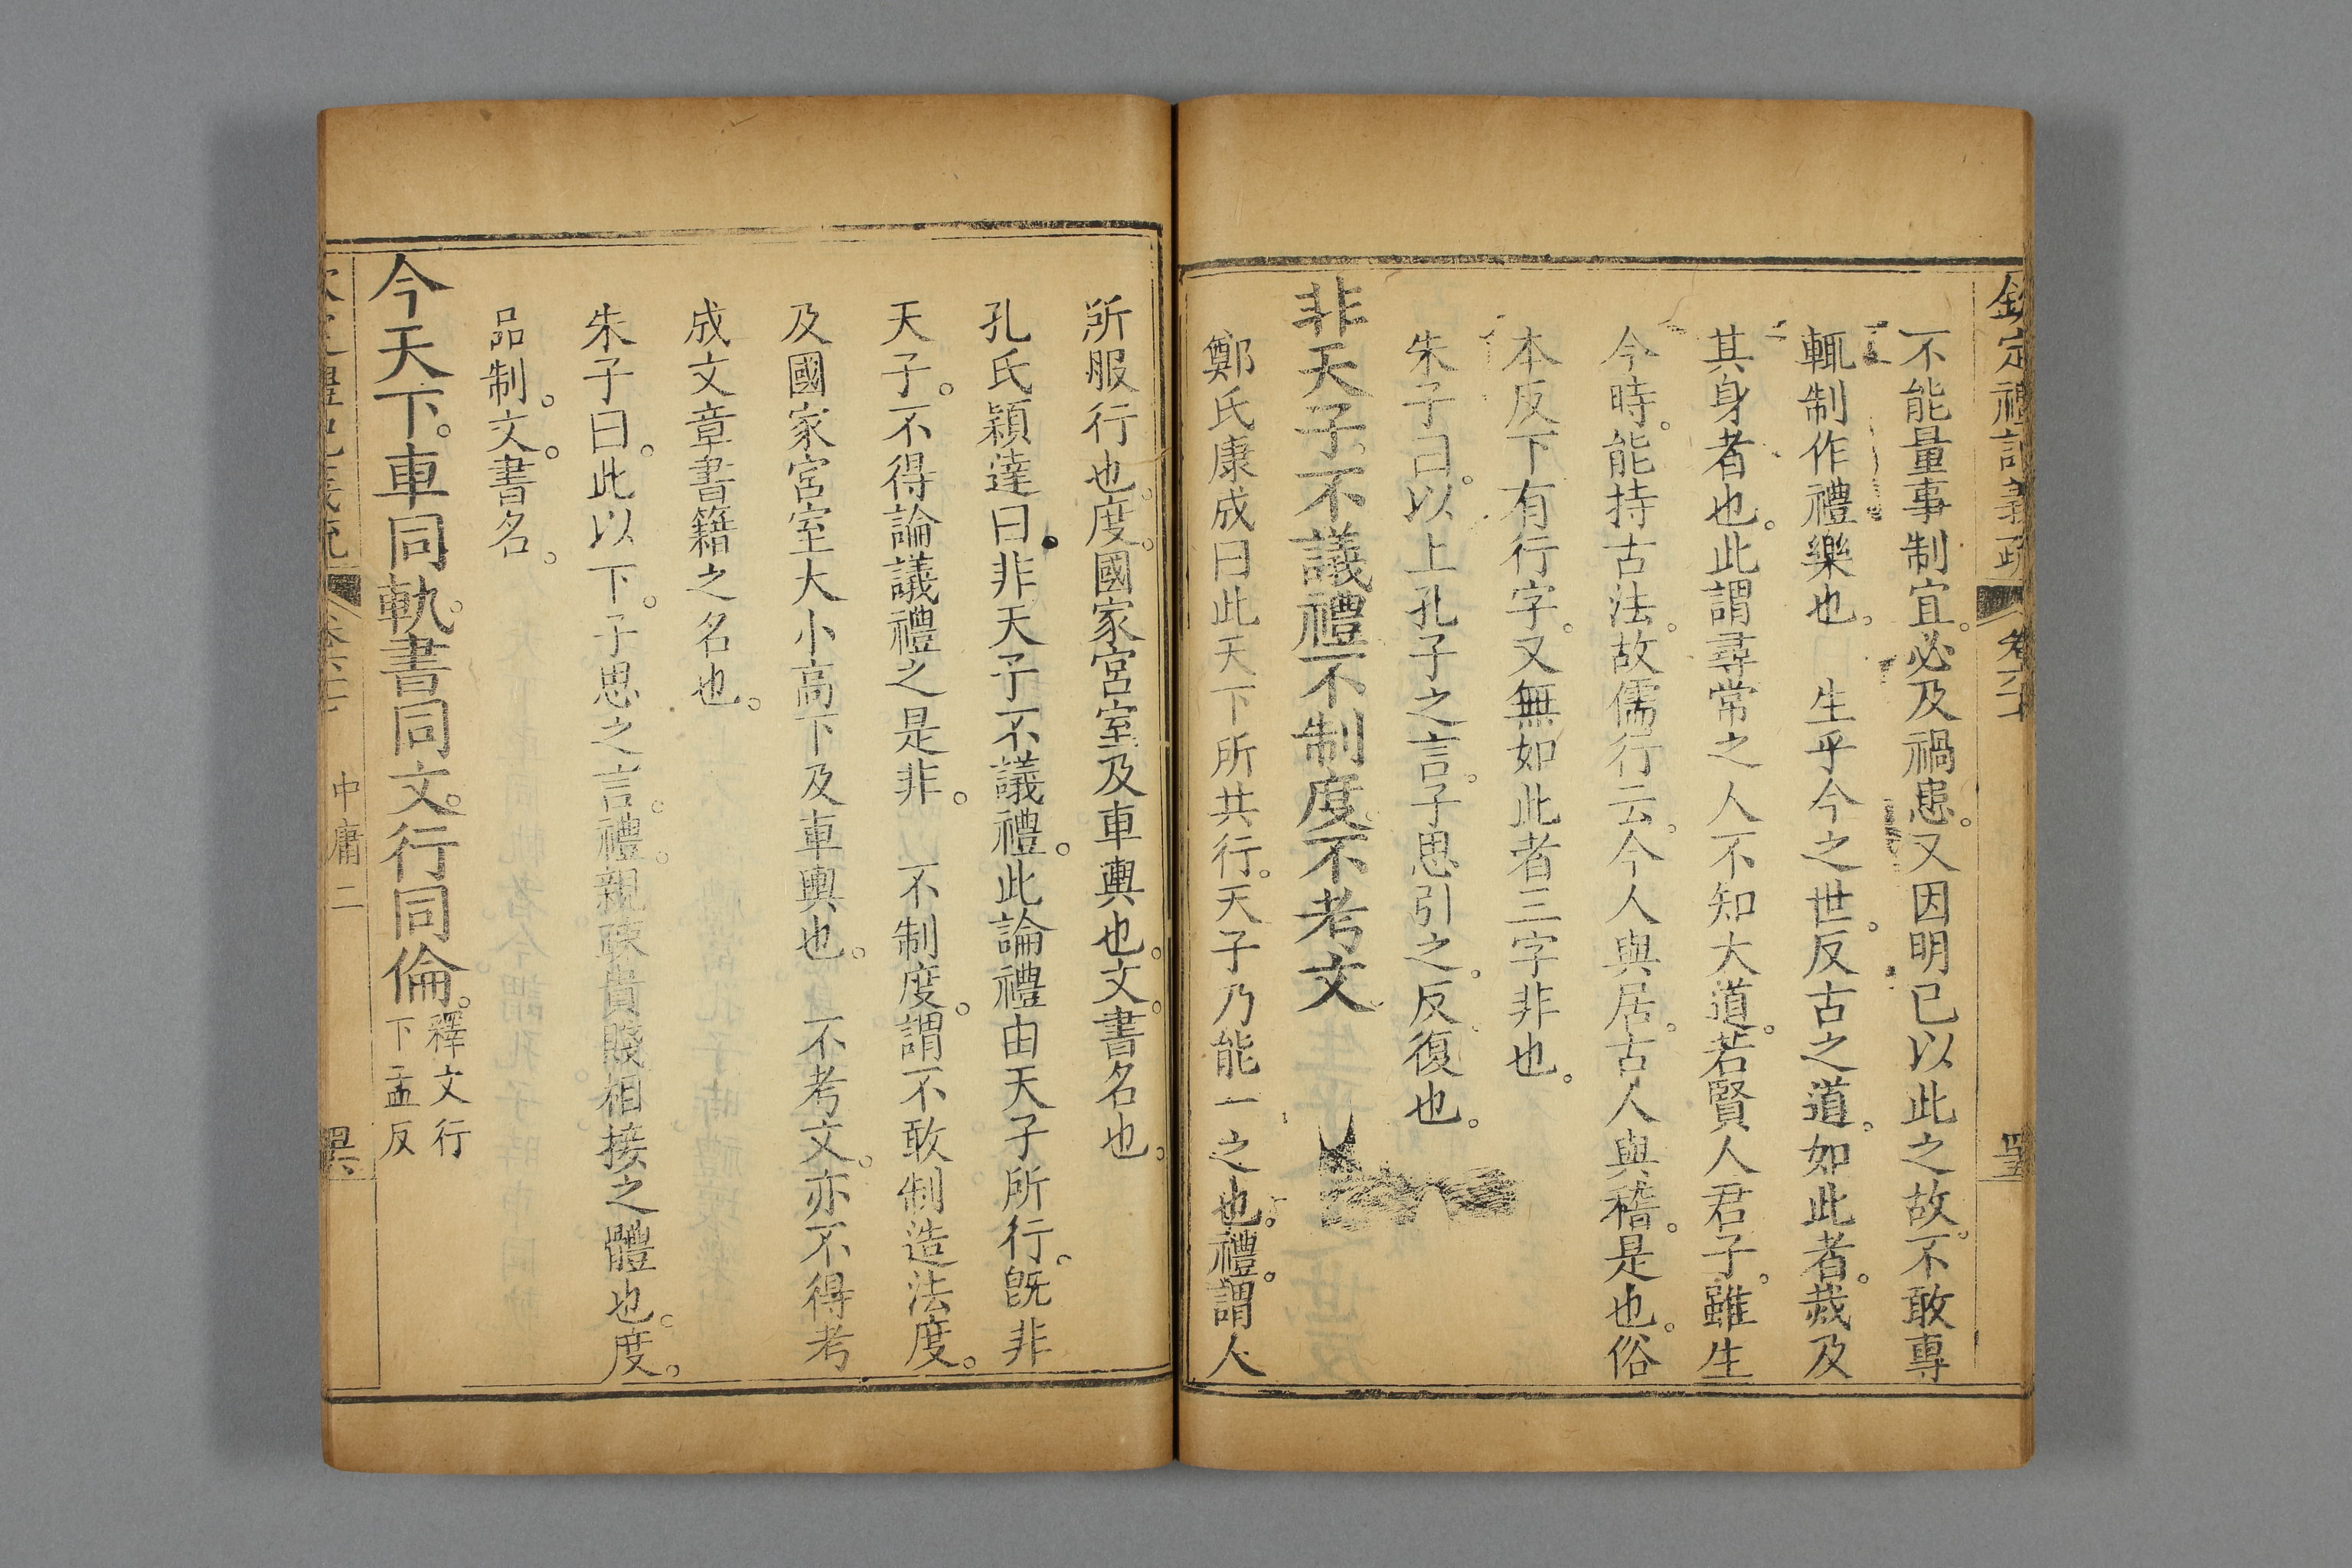 欽定禮記義疏 卷六十 四五
不能量事制宜。必及禍患。又因明已以此之故。不敢專
輒制作禮樂也。 生乎今之世。反古之道。如此者。烖及
其身者也。此謂尋常之人不知大道。若賢人君子。雖生
今時。能持古法。故儒行云。今人與居。古人與稽。是也。俗
本反下有行字。又無如此者三字非也。
朱子曰。以上孔子之言。子思引之。反復也。
非天子。不議禮。不制度。不考文。
鄭氏康成曰此天下所共行。天子乃能一之也。禮。謂人
所服行也。度。國家宮室及車輿也。文。書名也。
孔氏穎達曰非天子不議禮。此論禮由天子所行。旣非
天子。不得論議禮之是非。 不制度。謂不敢制造法度。
及國家宮室大小高下及車輿也。 不考文。亦不得考
成文章書籍之名也。
朱子曰。此以下。子思之言。禮。親疎貴賤相接之體也。度。
品制。文。書名。
今天下。車同軌。書同文。行同倫。釋文行下孟反
中庸二 四六